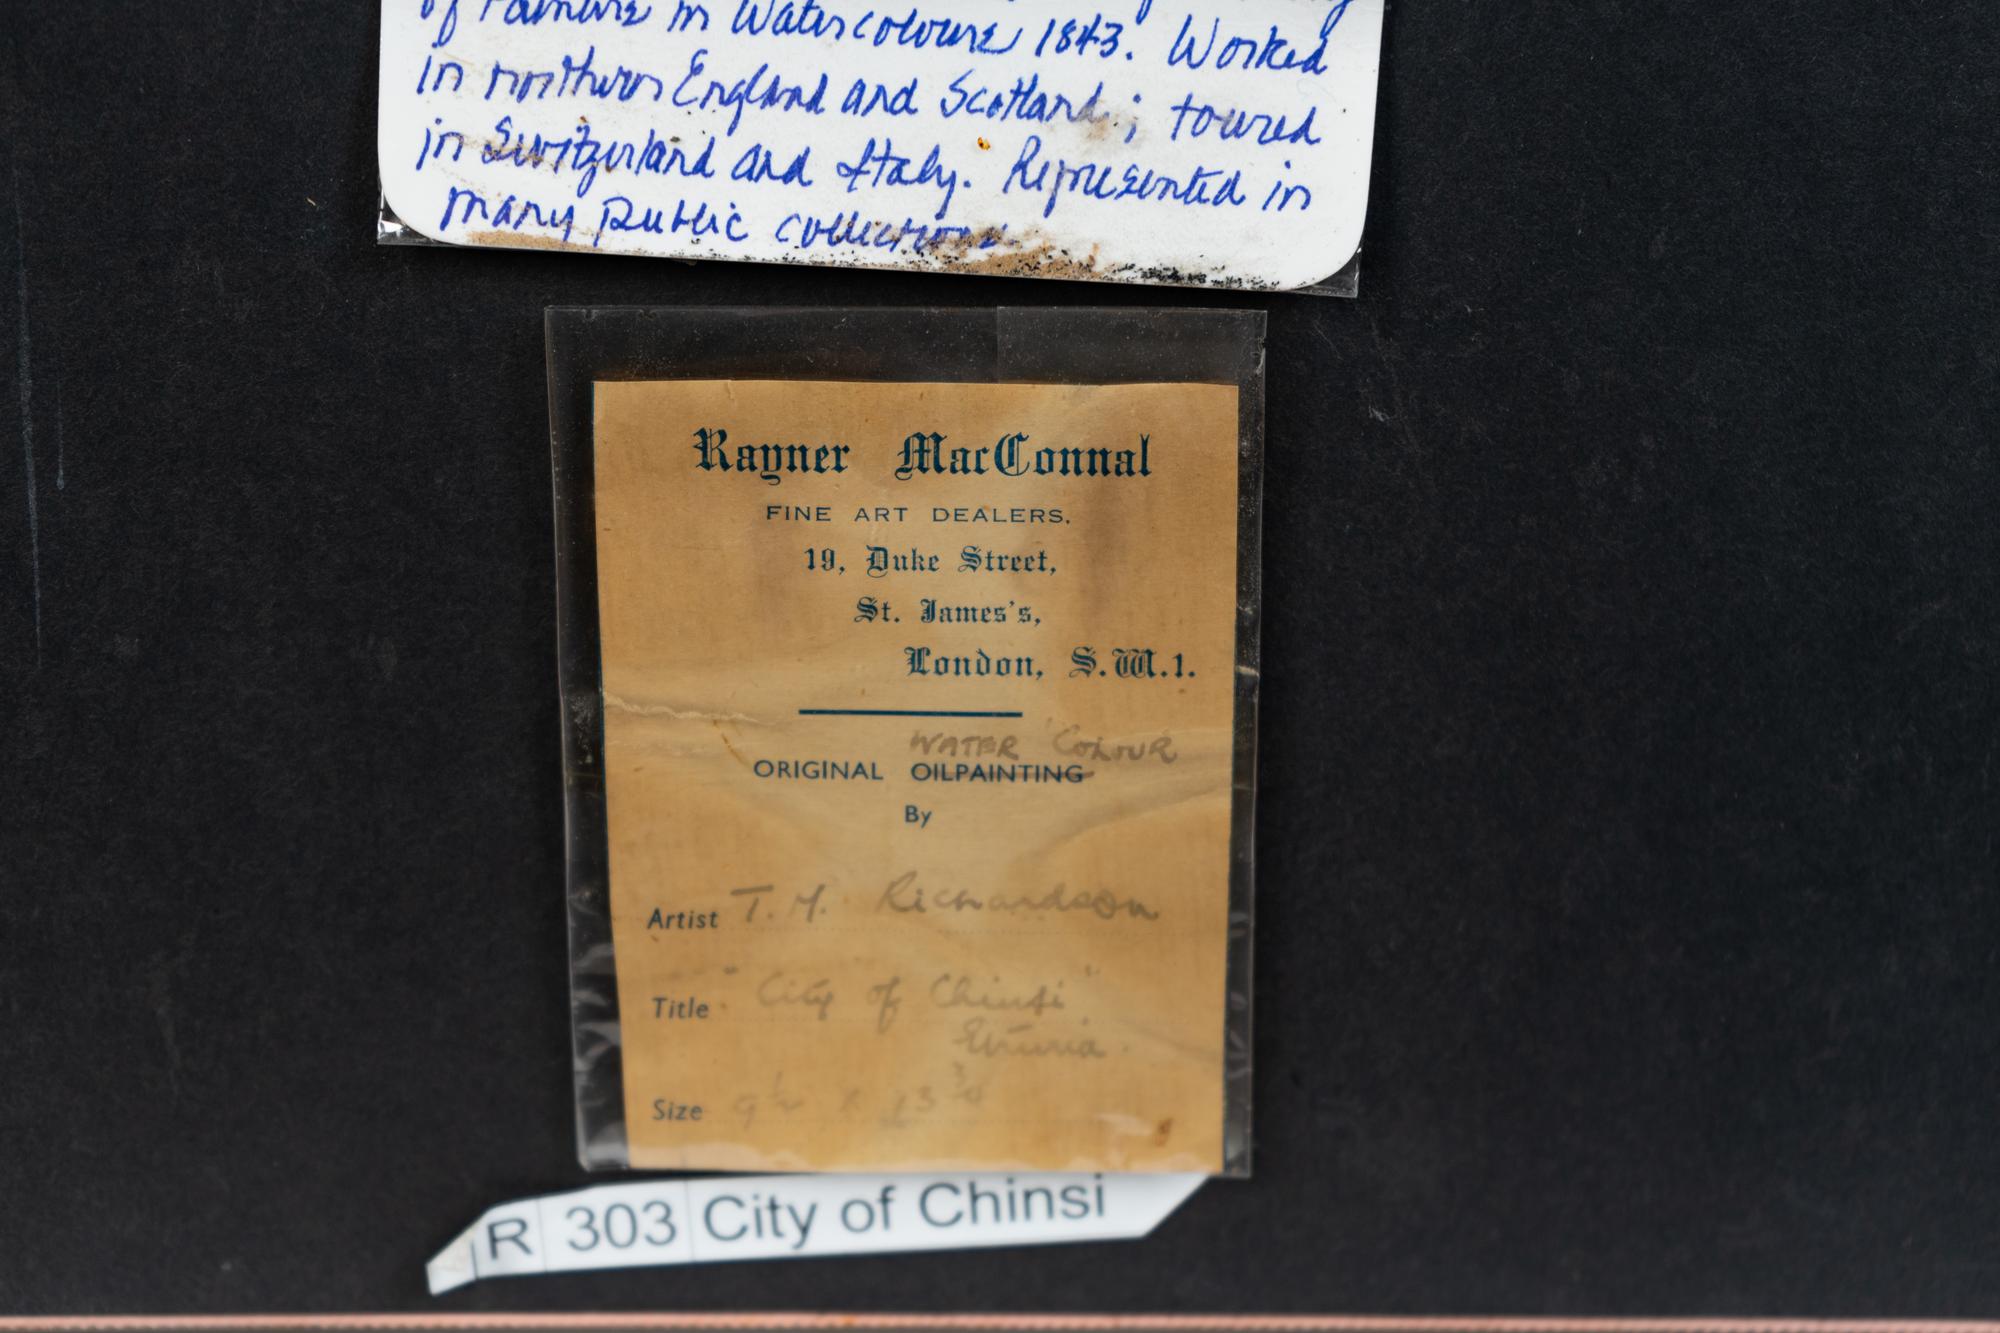 of Painters in Watercolours 1843. Worked
in northern England and Scotland; toured
in Switzerland and Italy. Represented in
many public collections.
Rayner MacConnal
FINE ART DEALERS.
19, Duke Street,
St. James's,
London, S.W.1.
WATER COLOUR
ORIGINAL OILPAINTING
By
Artist T. M. Richardson
Title "City of Chinsi"
Etruria.
Size 9½ x 13¾
R 303 City of Chinsi